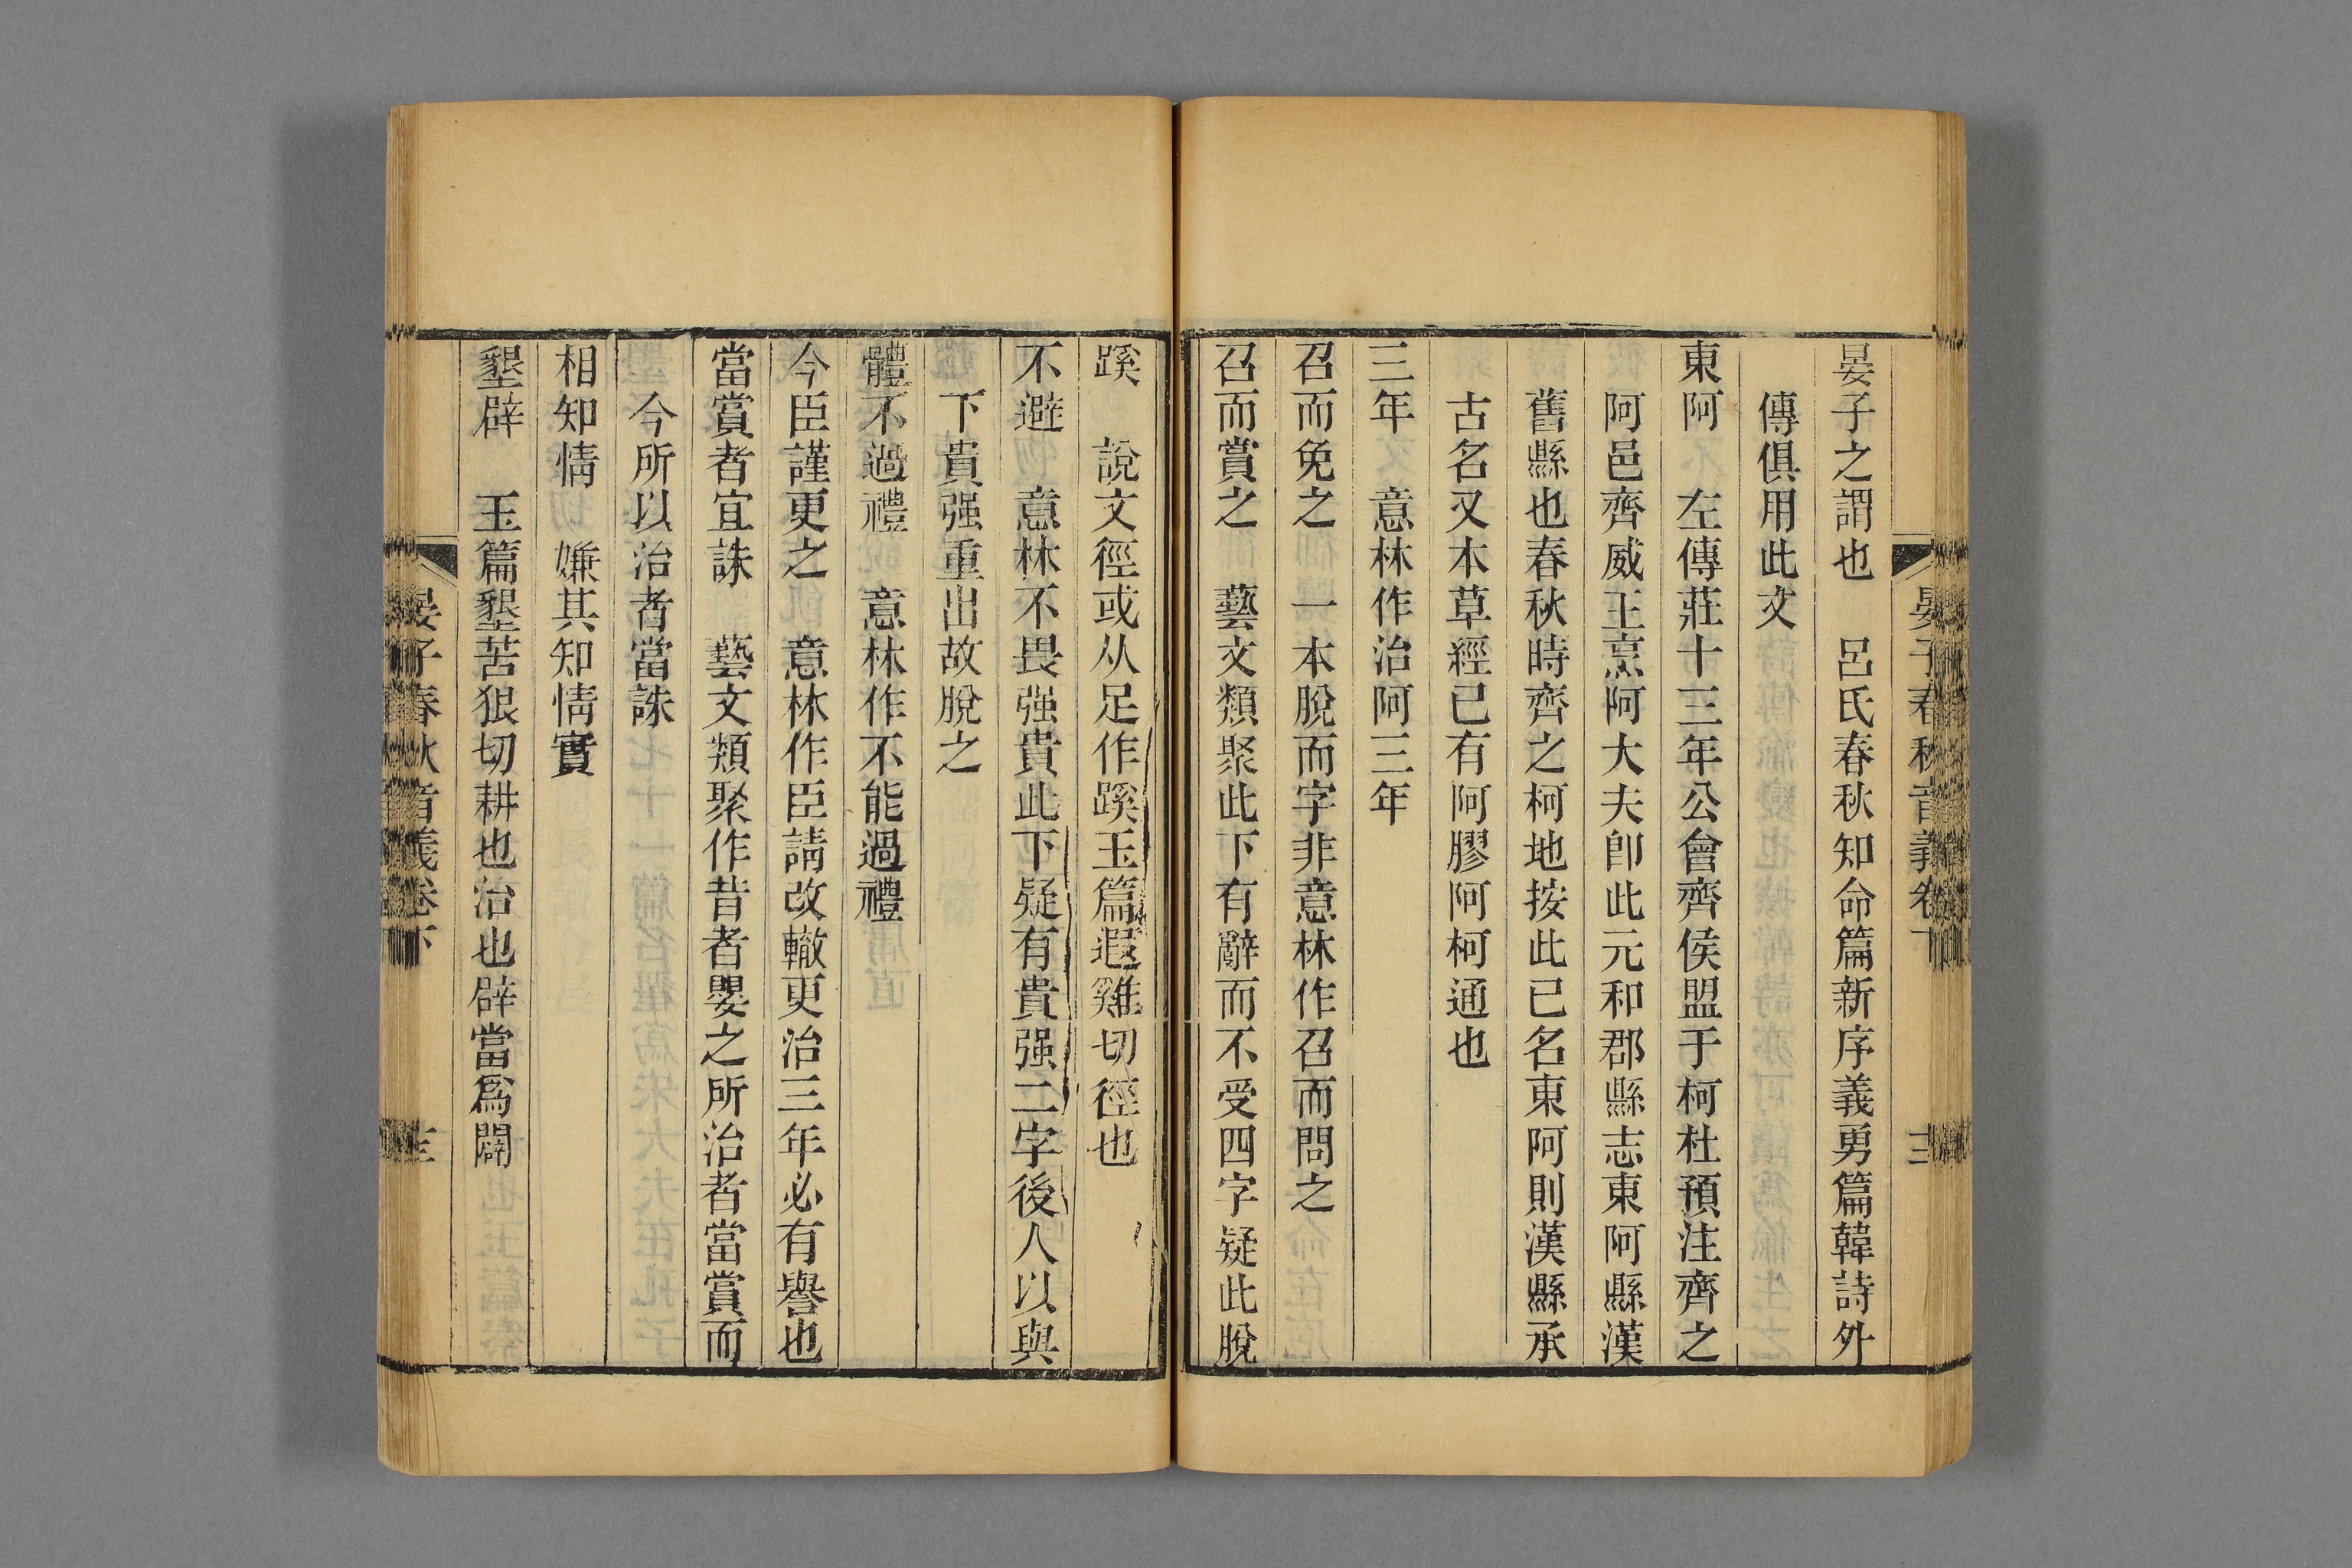 晏子之謂也　呂氏春秋知命篇新序義勇篇韓詩外
傳俱用此文
東阿　左傳莊十三年公會齊侯盟于柯杜預注齊之
阿邑齊威王烹阿大夫卽此元和郡縣志東阿縣漢
舊縣也春秋時齊之柯地按此已名東阿則漢縣承
古名又本草經已有阿膠阿柯通也
三年　意林作治阿三年
召而免之　一本脫而字非意林作召而問之
召而賞之　藝文類聚此下有辭而不受四字疑此脫
蹊　說文徑或从足作蹊玉篇遐雞切徑也
不避　意林不畏强貴此下疑有貴强二字後人以與
下貴强重出故脫之
體不過禮　意林作不能過禮
今臣謹更之　意林作臣請改轍更治三年必有譽也
當賞者宜誅　藝文類聚作昔者嬰之所治者當賞而
今所以治者當誅
相知情　嫌其知情實
墾辟　玉篇墾苦狠切耕也治也辟當爲闢
晏子春秋音義卷下